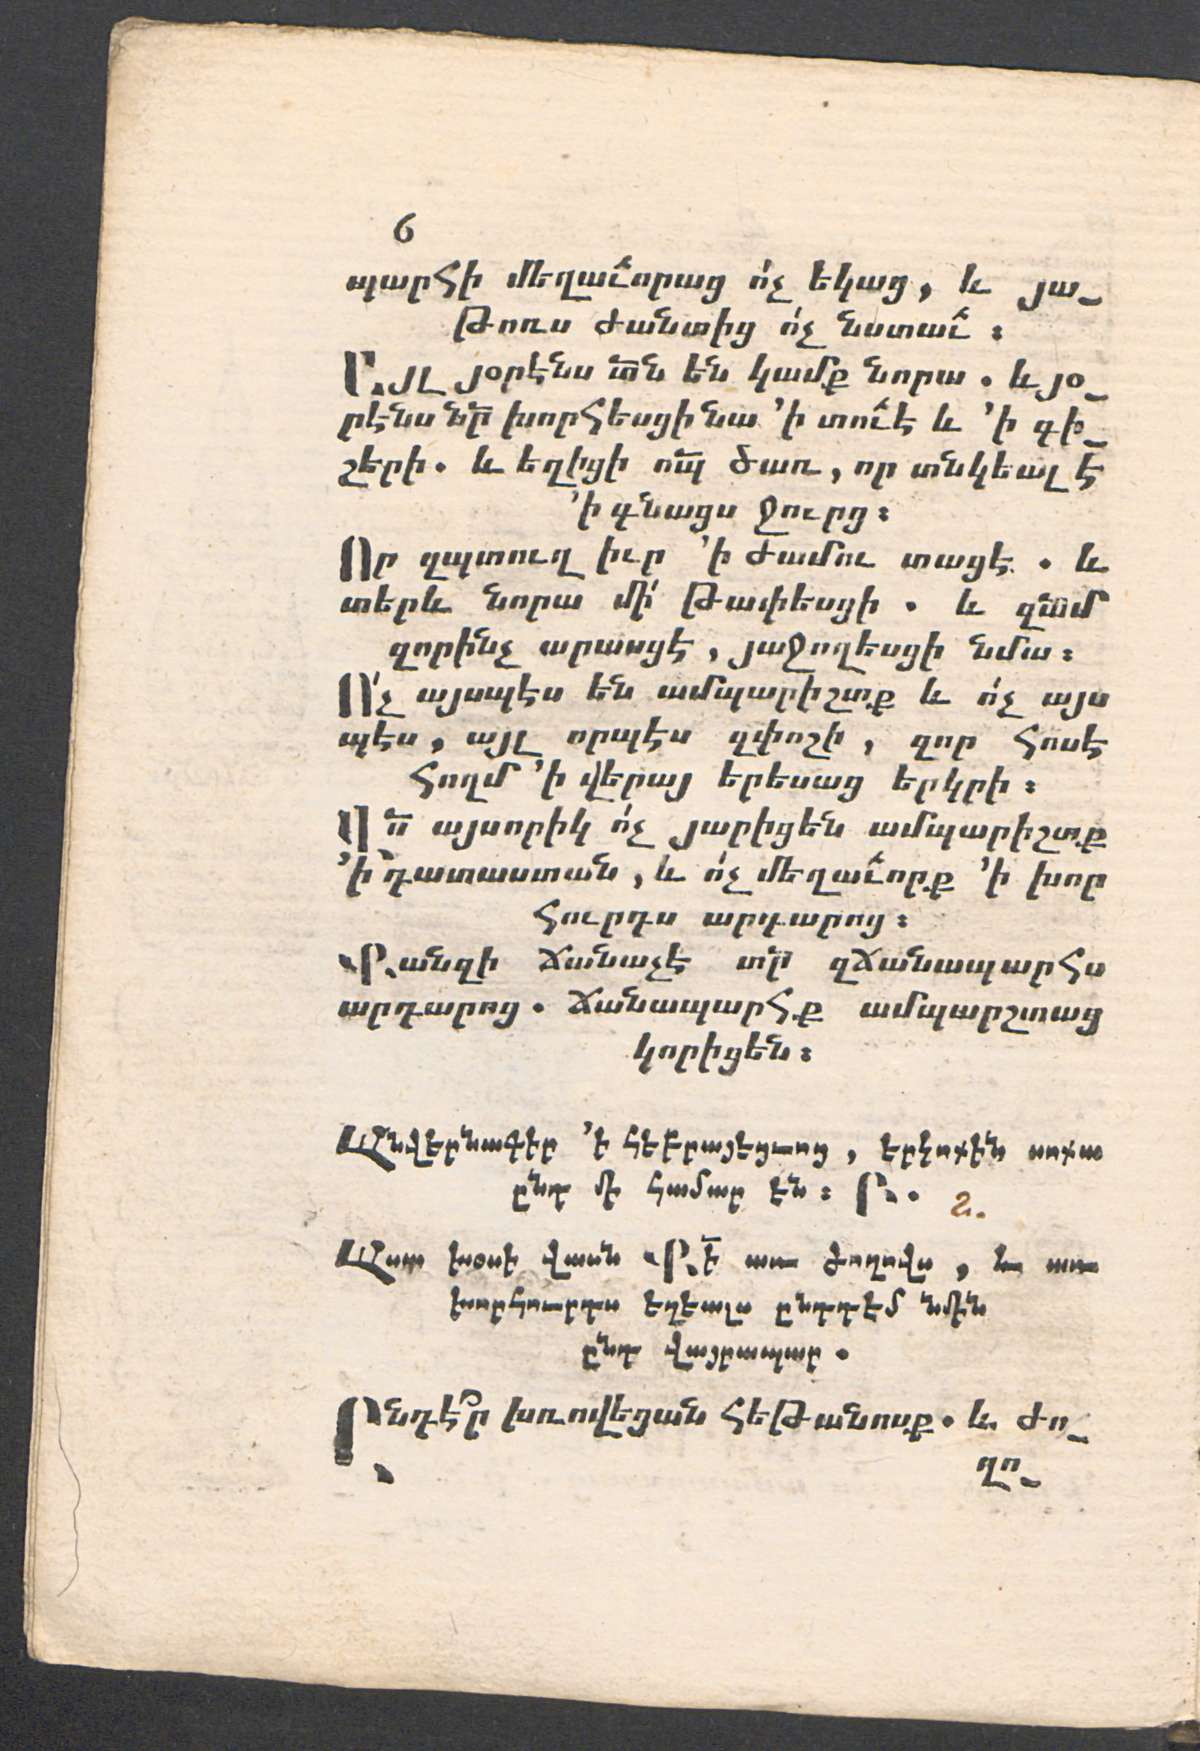 6
պարհի մեղաւ՜որաց ո՛չ եկաց, և յա֊
թոռս ժանտից ո՛չ նստաւ՜։
Այլ յօրէնս տ՞ն են կամք նորա. և յօ֊
րէնս նր՞ խորհեսցի նա ՚ի տուէ և ՚ի գի֊
շերի. և եղիցի ոպ՞ ծառ, որ տնկեալ է
՚ի գնացս ջուրց։
Որ զպտուղ իւր ՚ի ժամու տացէ. և
տերև նորա մի՛ թափեսցի. և զամ՞
զորինչ արասցէ, յաջողեսցի նմա։
Ո՛չ այսպէս են ամպարիշտք և ո՛չ այս
պէս, այլ որպէս զփոշի, զոր հոսէ
հողմ ՚ի վերայ երեսաց երկրի։
Վս՞ այսորիկ ո՛չ յարիցեն ամպարիշտք
՚ի դատաստան, և ո՛չ մեղաւ՜որք ՚ի խոր
հուրդս արդարոց։
Քանզի ճանաչէ տր՞ զճանապարհս
արդարոց. ճանապարհք ամպարշտաց
կորիցեն։
Անվերնագիր ՚ի հեբրայեցւոց, երկոքին սոքա
ընդ մի համար են։ Ա. 2.
Աստ խօսի վասն Քի՞ առ ժողովս, և առ
խորհուրդս եղեալս ընդդէմ նմին
ընդ վայրապար.
Ընդէ՞ր խռովեցան հեթանոսք. և ժո֊
ղո֊